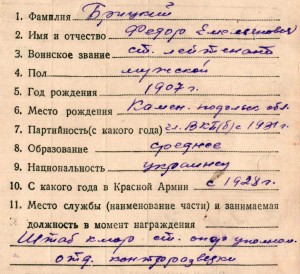 1. Фамилия Брицкий
2. Имя и отчество Федор Емельянович
3. Воинское звание ст. лейтенант
4. Пол мужской
5. Год рождения 1907 г.
6. Место рождения Камен. подольск обл.
7. Партийность(с какого года) чл. ВКП(б) с 1931 г.
8. Образование среднее
9. Национальность украинец
10. С какого года в Красной Армии с 1928 г.
11. Место службы (наименование части) и занимаемая
должность в момент награждения
Штаб ст. опер уполном.
отд. контрразведки